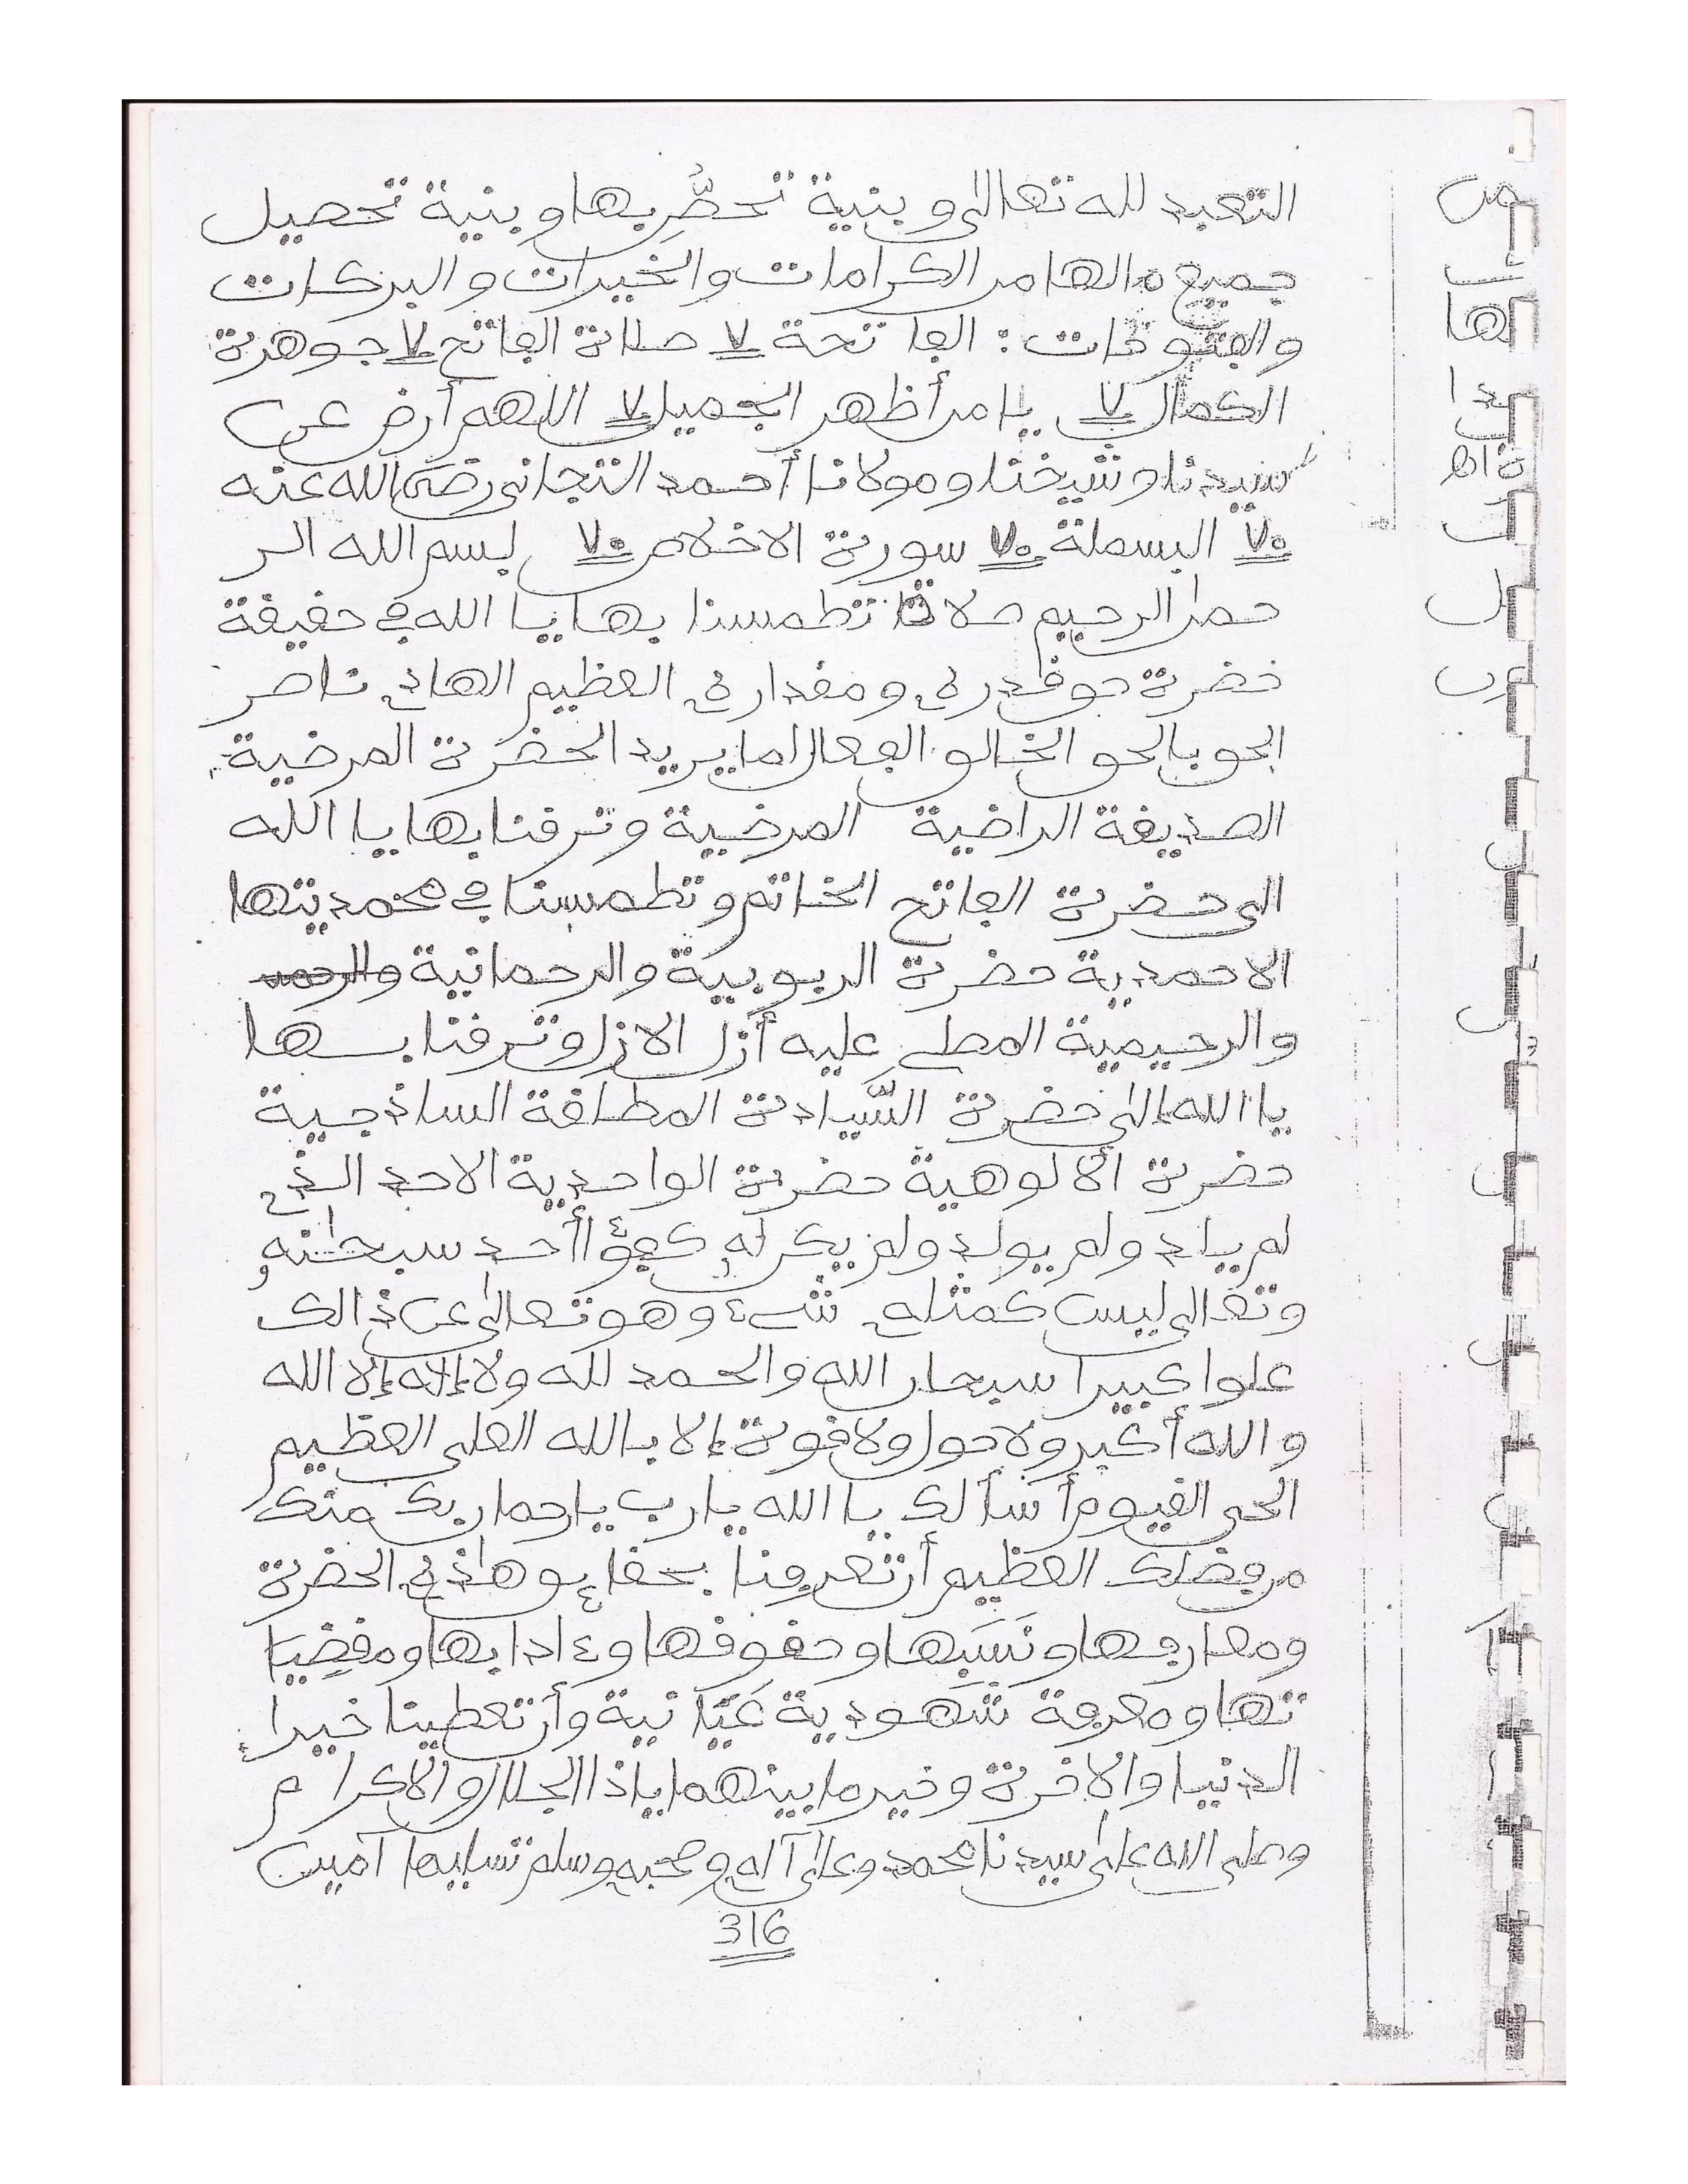 التعبد لله تعالى وبنية تحضّر بها وبنية تحصيل
جميع مالها من الكرامات والخيرات والبركات
والفتوحات : الفاتحة ٧ صلاة الفاتح ٧ جوهرة
الكمال ٧ يا من أظهر الجميل ٧ اللهم أرض عن
سيدنا وشيخنا ومولانا أحمد التجاني رضى الله عنه
٧٠ البسملة ٧٠ سورة الاخلاص ٧٠ بسم الله الر
حمن الرحيم صلاة تطمسنا بها يا الله في حقيقة
حضرة حق قدره ومقداره العظيم الهادي ناصر
الحق بالحق الخالق الفعال لما يريد الحضرة المرضية
الصديقة الراضية المرضية وترقنا بها يا الله
الى حضرة الفاتح الخاتم وتطمسنا في محمديتها
الاحمدية حضرة الربوبية والرحمانية
والرحيمية المصلي عليه أزل الازل وترقنا بها
يا الله إلى حضرة السّيادة المطلقة الساذجية
حضرة الألوهية حضرة الواحدية الاحد الذي
لم يلد ولم يولد ولم يكن له كفؤا أحد سبحانه
وتعالى ليس كمثله شيء وهو تعالى عن ذالك
علوا كبيرا سبحان الله والحمد لله ولا إله إلا الله
والله أكبر ولا حول ولا قوة إلا بالله العلى العظيم
الحي القيوم أسألك يا الله يا رب يا رحمان بك منك
من فضلك العظيم أن تعرفنا بحقائق هاذه الحضرة
ومعارفها ونَسَبها وحقوقها وءادابها ومقضِيَا
تها ومعرفة شهودية عَيَانية وأن تعطينا خير
الدنيا والاخرة وخير ما بينهما ياذا الجلال والاكرام
وصلى الله على سيدنا محمد وعلى آله وصحبه وسلم تسليما آمين
316